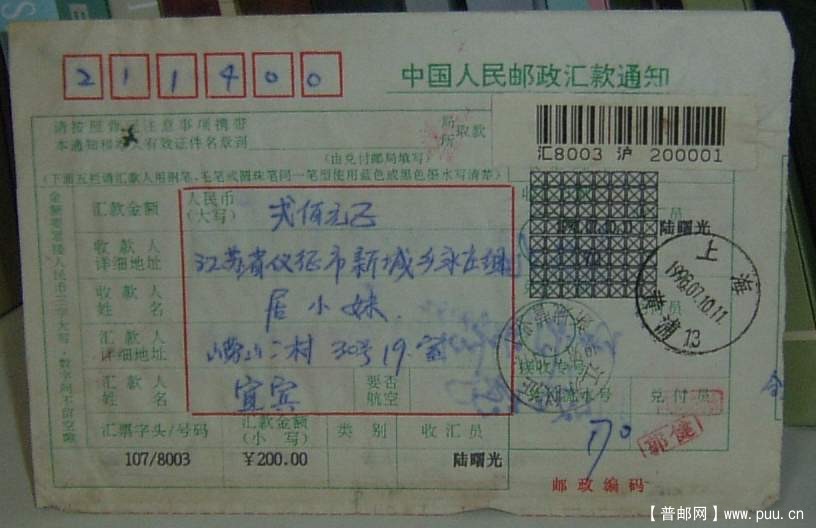 211400
中国人民邮政汇款通知
请按照背面注意事项携带
本通知和本人有效证件名章到
局所取款
(由兑付邮局填写)
汇8003 沪 200001
(下面五栏请汇款人用钢笔、毛笔或圆珠笔同一笔型使用蓝色或黑色墨水写清楚)
汇款金额
人民币(大写)
弍佰元正
陆曙光
收款人详细地址
江苏省仪征市新城乡永庄组
收款人姓名
居小妹
汇款人详细地址
崂山二村 30号19室
接收专号
汇款人姓名
宜宾
要否航空
兑付流水号
兑付员
上海
1998.07.10.11.
黄浦
13
汇票字头/号码
汇款金额(小写)
类别
收汇员
107/8003
¥200.00
陆曙光
170
郭健
邮政编码
【普邮网】www.puu.cn